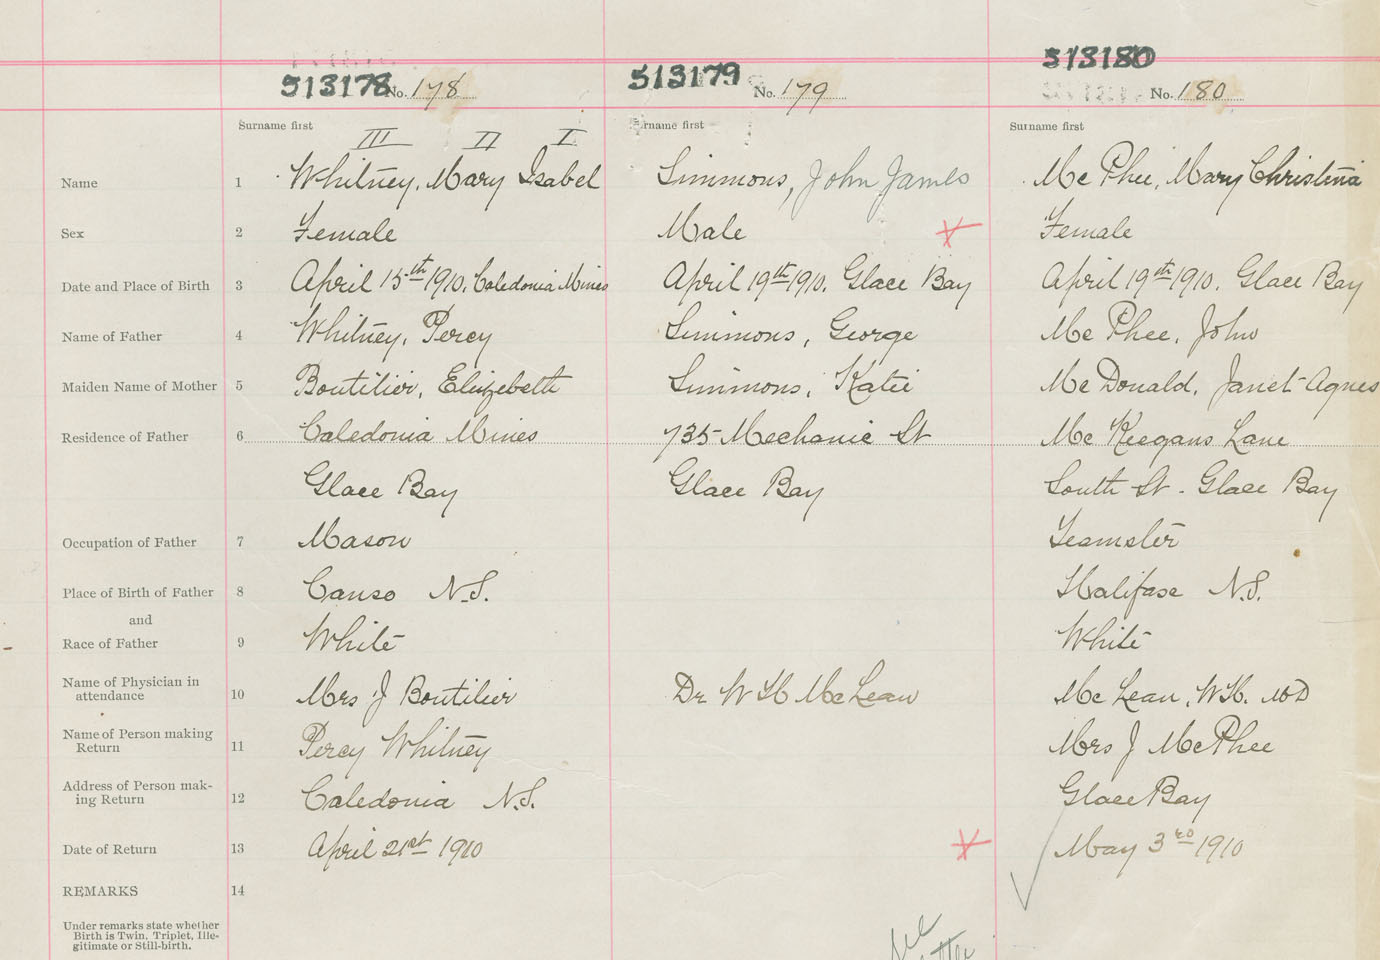 513178 No. 178 513179 No. 179 513180 No. 180
Surname first Surname first Surname first
III II I
Name 1 Whitney, Mary Isabel Simmons, John James Mc Phee, Mary Christina
Sex 2 Female Male Female
Date and Place of Birth 3 April 15th 1910, Caledonia Mines April 19th 1910. Glace Bay April 19th 1910. Glace Bay
Name of Father 4 Whitney, Percy Simmons, George Mc Phee, John
Maiden Name of Mother 5 Boutilier, Elizebeth Simmons, Katie Mc Donald, Janet Agnes
Residence of Father 6 Caledonia Mines 735 Mechanic St Mc Keegans Lane
Glace Bay Glace Bay South St. Glace Bay
Occupation of Father 7 Mason Teamster
Place of Birth of Father 8 Canso N.S. Halifax N.S.
and
Race of Father 9 White White
Name of Physician in
attendance 10 Mrs J Boutilier Dr W H McLean Mc Lean, W.H. MD
Name of Person making
Return 11 Percy Whitney Mrs J McPhee
Address of Person mak-
ing Return 12 Caledonia N.S. Glace Bay
Date of Return 13 April 21st 1910 May 3rd 1910
REMARKS 14
Under remarks state whether
Birth is Twin, Triplet, Ille-
gitimate or Still-birth.
see